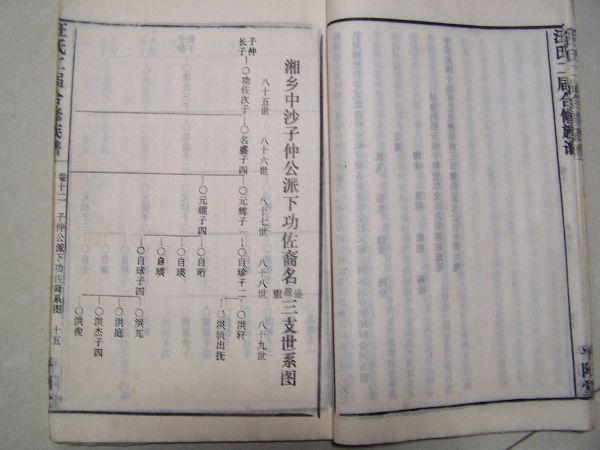 汪氏二届合修族谱
湘乡中沙子仲公派下功佐裔名盛盈盤三支世系图
八十五世
八十六世
八十七世
八十八世
八十九世
子仲长子—○功佐次子—○名盛子四—○元辉子一—○自珍子二—○洪轩
○洪轨出抚
○元耀子四—○自珩
○自瑛
○自璜
○自球子四—○洪兀
○洪庭
○洪杰子四
○洪俊
汪氏二届合修族谱
卷十二
子仲公派下功佐裔系图
十五